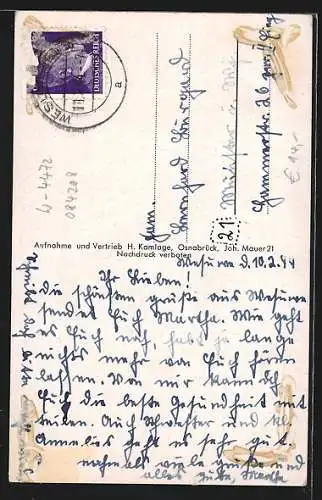 DEUTSCHES REICH
WESU
a
Fam.
Bernhard
Münster i. W.
Hammerstr. 26
21
€ 14,-
W-4472
084208
Aufnahme und Vertrieb H. Kamlage, Osnabrück, Joh. Mauer 21
Nachdruck verboten
Wesuwe d. 10.2.44
Ihr Lieben!
die schönsten Grüße aus Wesuwe
sendet Euch Martha. Wie geht
es Euch noch, habt ja lange
nichts mehr von Euch hören
lassen. Von mir kann ich
Euch die beste Gesundheit mit
teilen. Auch Schwester und Kl.
Annelies geht es sehr gut.
nochmals viele Grüße und
alles Gute, Martha